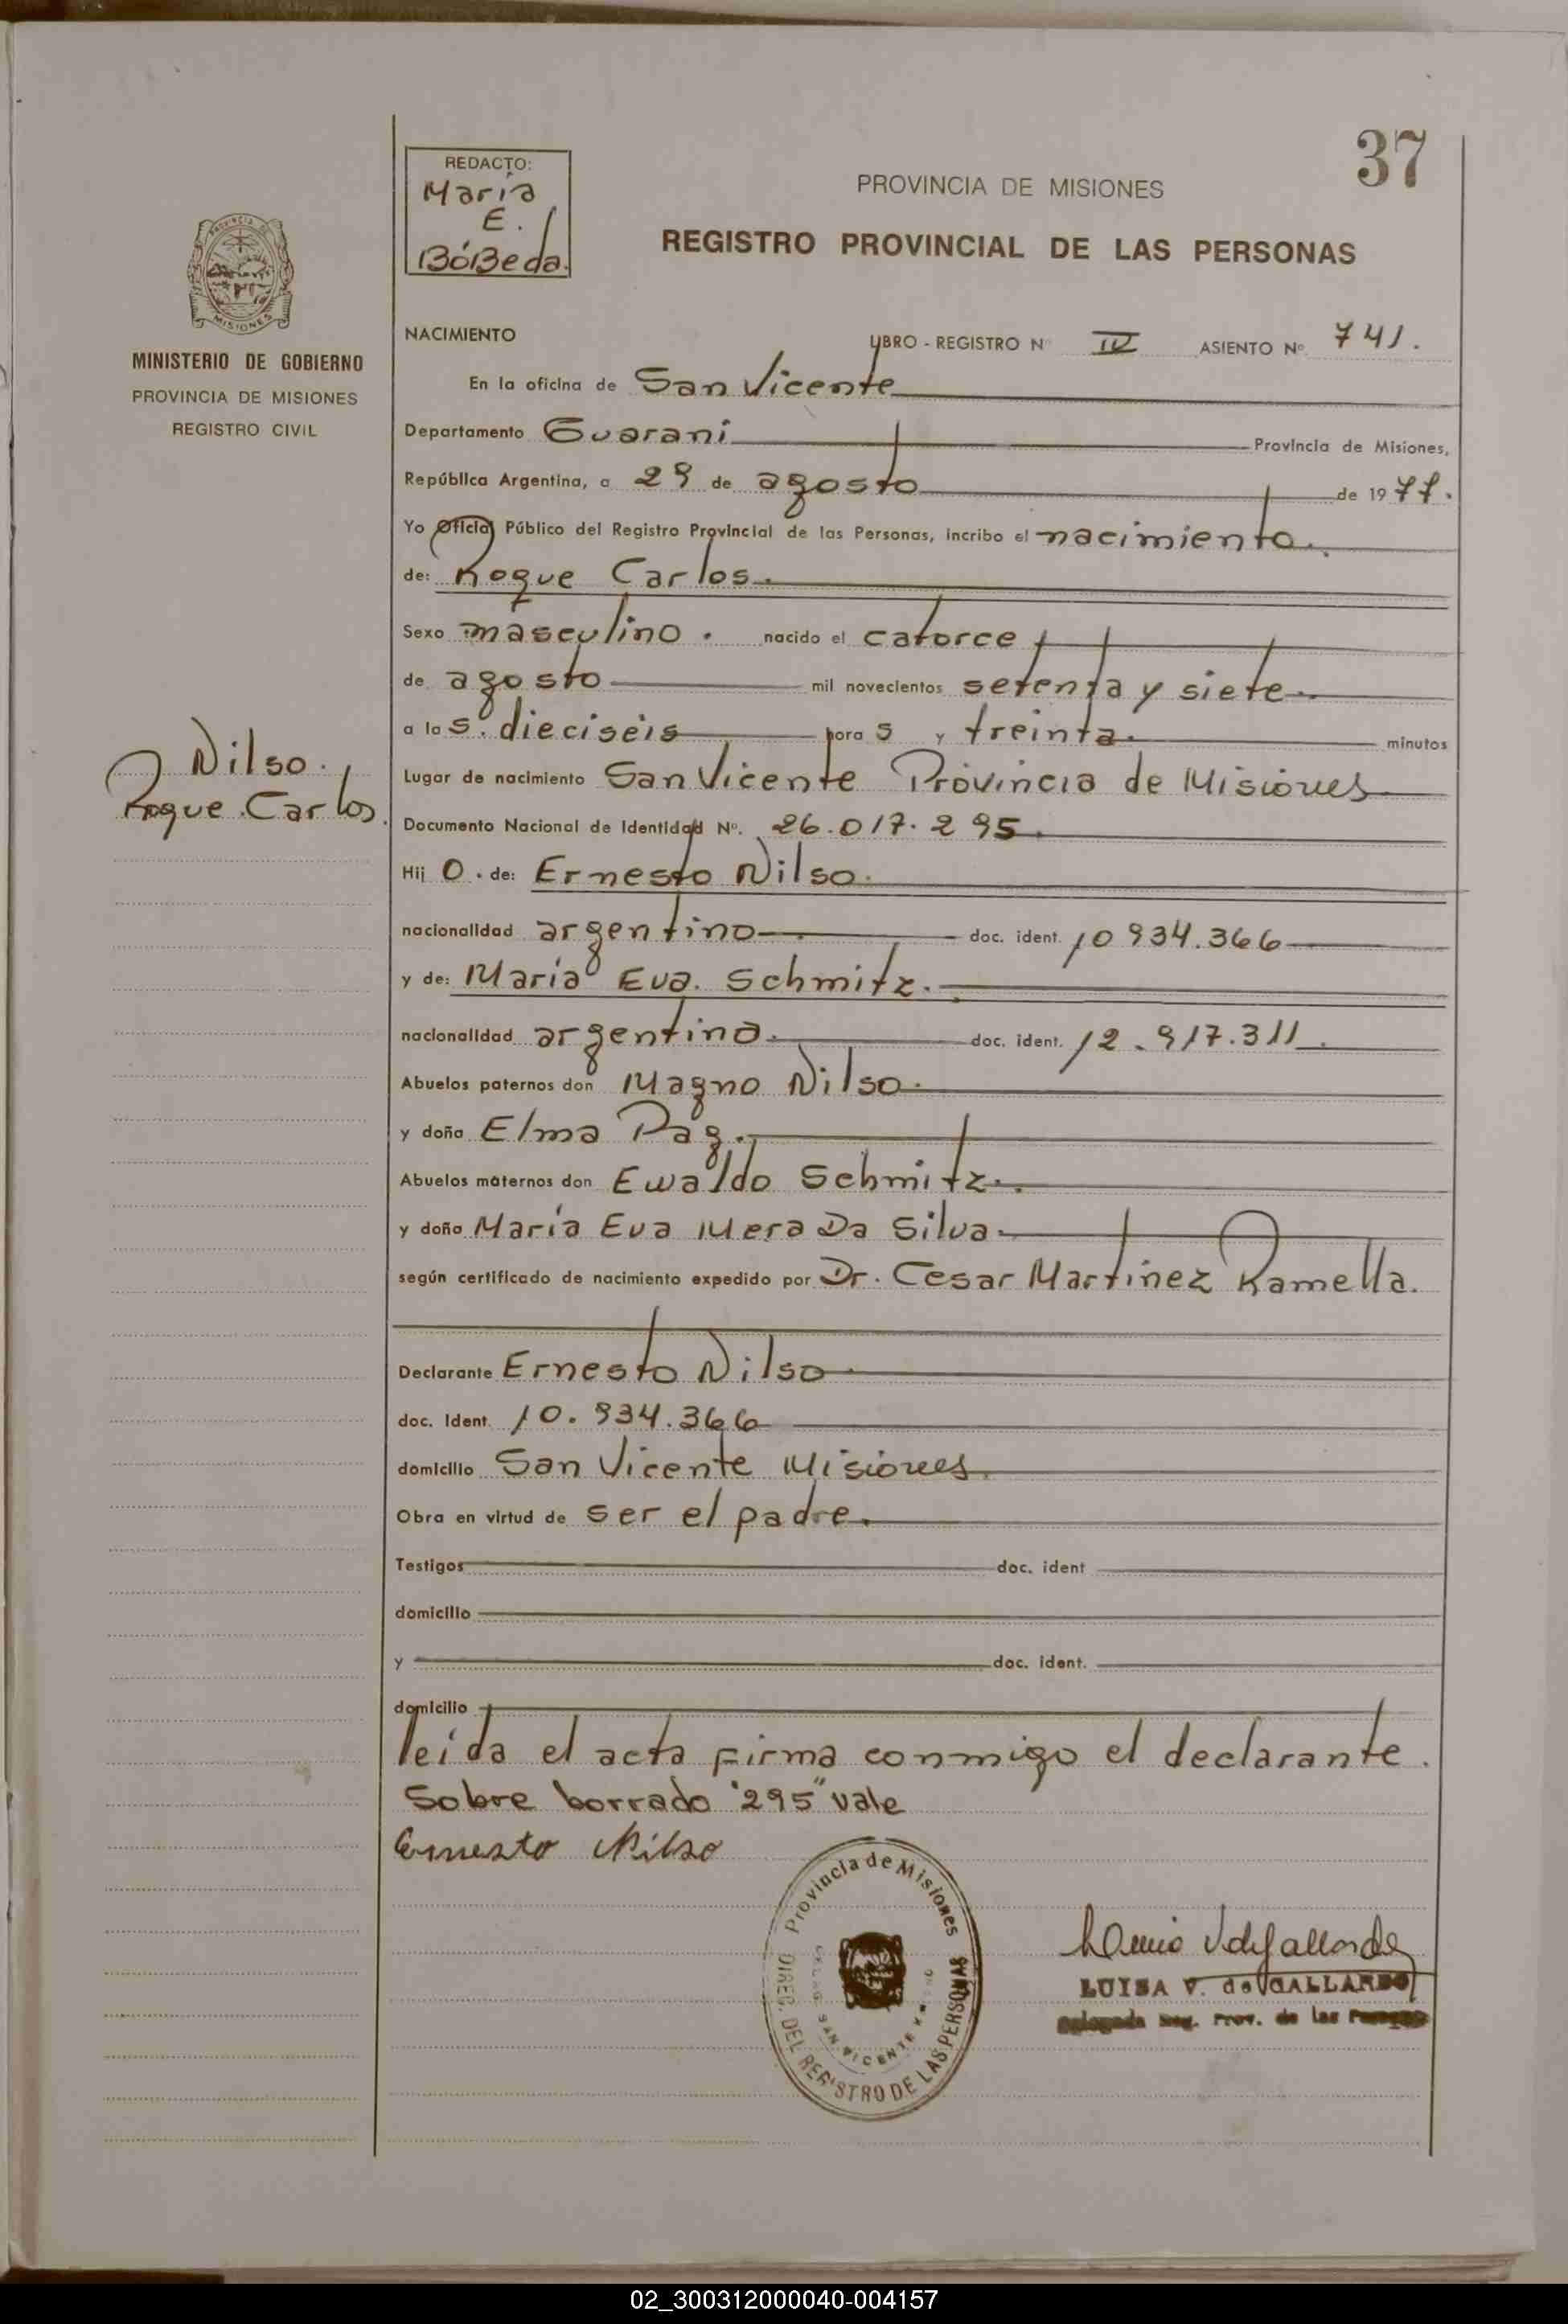 37
REDACTO:
María
E.
BóBeda.
PROVINCIA DE MISIONES
REGISTRO PROVINCIAL DE LAS PERSONAS
PROVINCIA DE
MISIONES
MINISTERIO DE GOBIERNO
PROVINCIA DE MISIONES
REGISTRO CIVIL
Nilso.
Roque Carlos.
NACIMIENTO LIBRO - REGISTRO Nº IV ASIENTO Nº 741.
En la oficina de San Vicente
Departamento Guaraní Provincia de Misiones,
República Argentina, a 29 de agosto de 1977.
Yo Oficial Público del Registro Provincial de las Personas, incribo el nacimiento.
de: Roque Carlos.
Sexo masculino. nacido el catorce
de agosto mil novecientos setenta y siete.
a las. dieciséis horas y treinta. minutos
Lugar de nacimiento San Vicente Provincia de Misiones
Documento Nacional de Identidad Nº. 26.017.295.
Hijo. de: Ernesto Nilso.
nacionalidad argentino doc. ident. 10934.366
y de: María Eva. Schmitz.
nacionalidad argentina. doc. ident. 12.917.311.
Abuelos paternos don Magno Nilso.
y doña Elma Pag.
Abuelos maternos don Ewaldo Schmitz.
y doña María Eva Mera Da Silva.
según certificado de nacimiento expedido por Dr. Cesar Martínez Ramella.
Declarante Ernesto Nilso.
doc. Ident. 10.934.366
domicilio San Vicente Misiones.
Obra en virtud de ser el padre.
Testigos doc. ident
domicilio
y doc. ident.
domicilio
leída el acta firma conmigo el declarante.
Sobre borrado "295" vale
Ernesto Nilso
Provincia de Misiones
DIREC. DEL REGISTRO DE LAS PERSONAS
SAN VICENTE
LUISA V. de GALLARDO
Delegada Reg. Prov. de las Personas
02_300312000040-004157